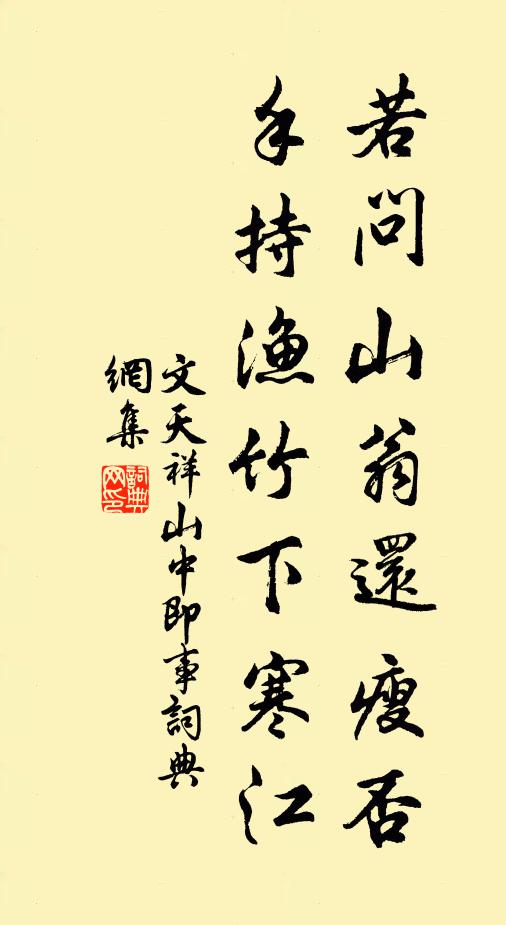 若問山翁還瘦否
手持漁竹下寒江
文天祥山中即事詞典
網集
詞典
网印